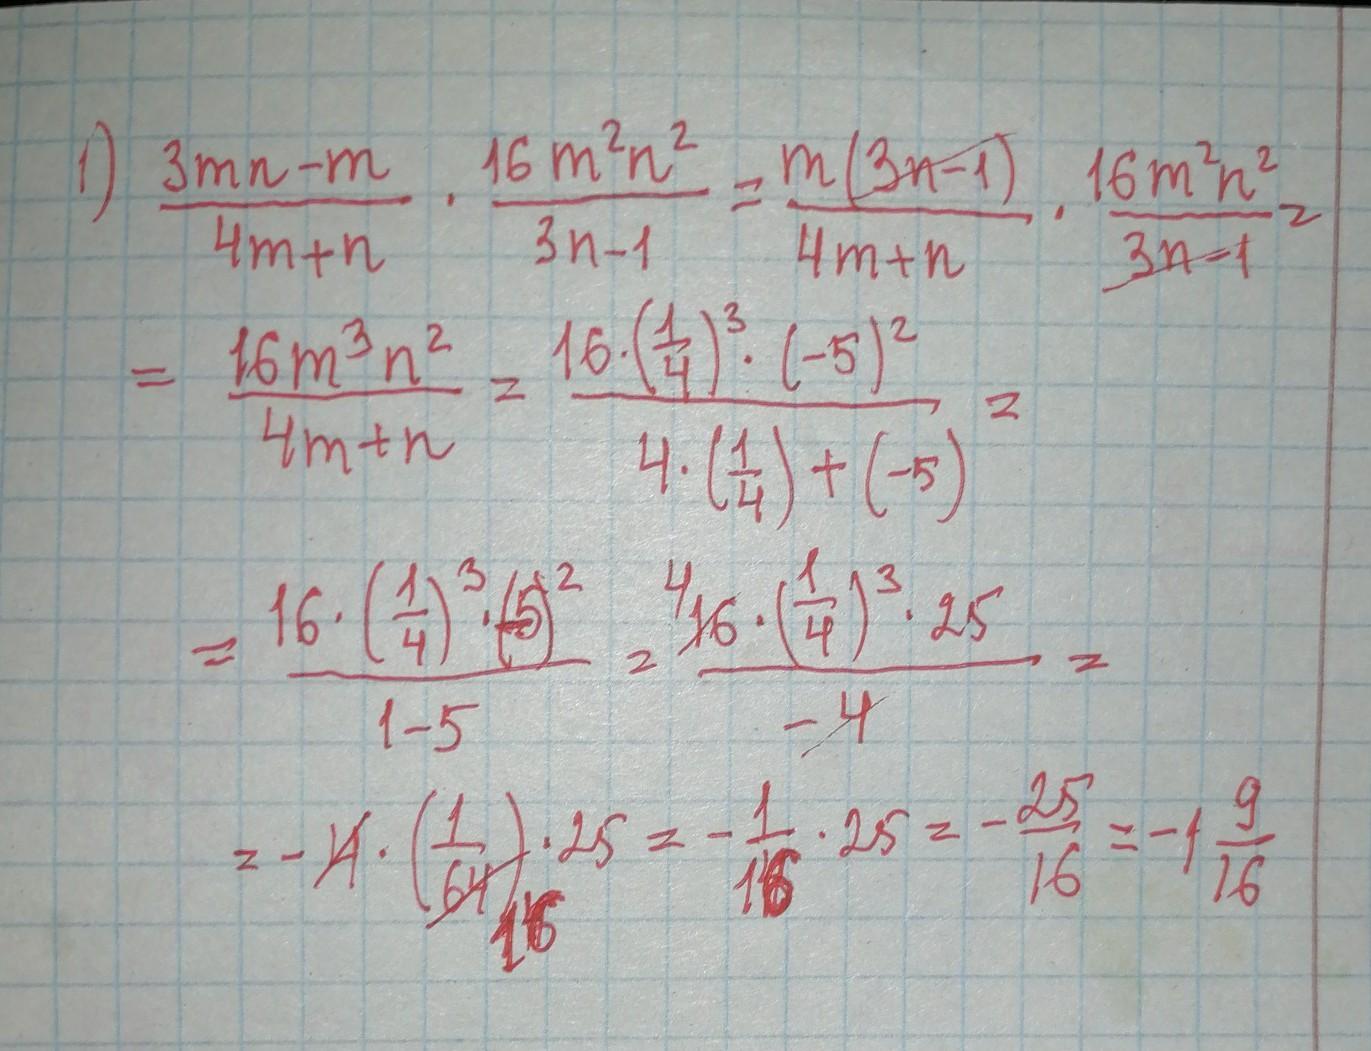 1) (3mn-m)/(4m+n) · (16m²n²)/(3n-1) = (m(3n-1))/(4m+n) · (16m²n²)/(3n-1) =
= (16m³n²)/(4m+n) = (16·(1/4)³·(-5)²)/(4·(1/4)+(-5)) =
= (16·(1/4)³·(-5)²)/(1-5) = (⁴16·(1/4)³·25)/(-4) =
= -4·(1/64)·25 = -1/16·25 = -25/16 = -1 9/16
16